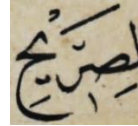 لصَرِيْحِ